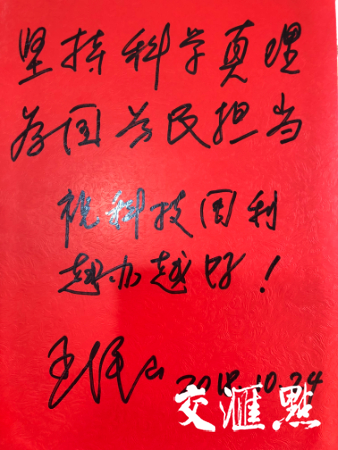 坚持科学真理
为国为民担当
祝科技周刊
越办越好！
王 2018.10.24
交滙點